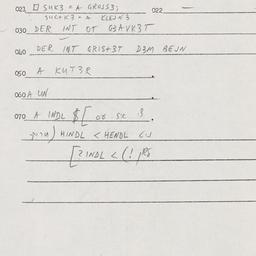 023 SUK3 = A GROSS3; 022
SUCHK3 = A KLEJN3
030 DER INT OT G3AVK3T
040 DER INT GRIST3T D3M BEJN
050 A KUT3R
060 A UN
070 A INDL $[ or SK 3.
) HINDL < HENDL
[? INDL < (!